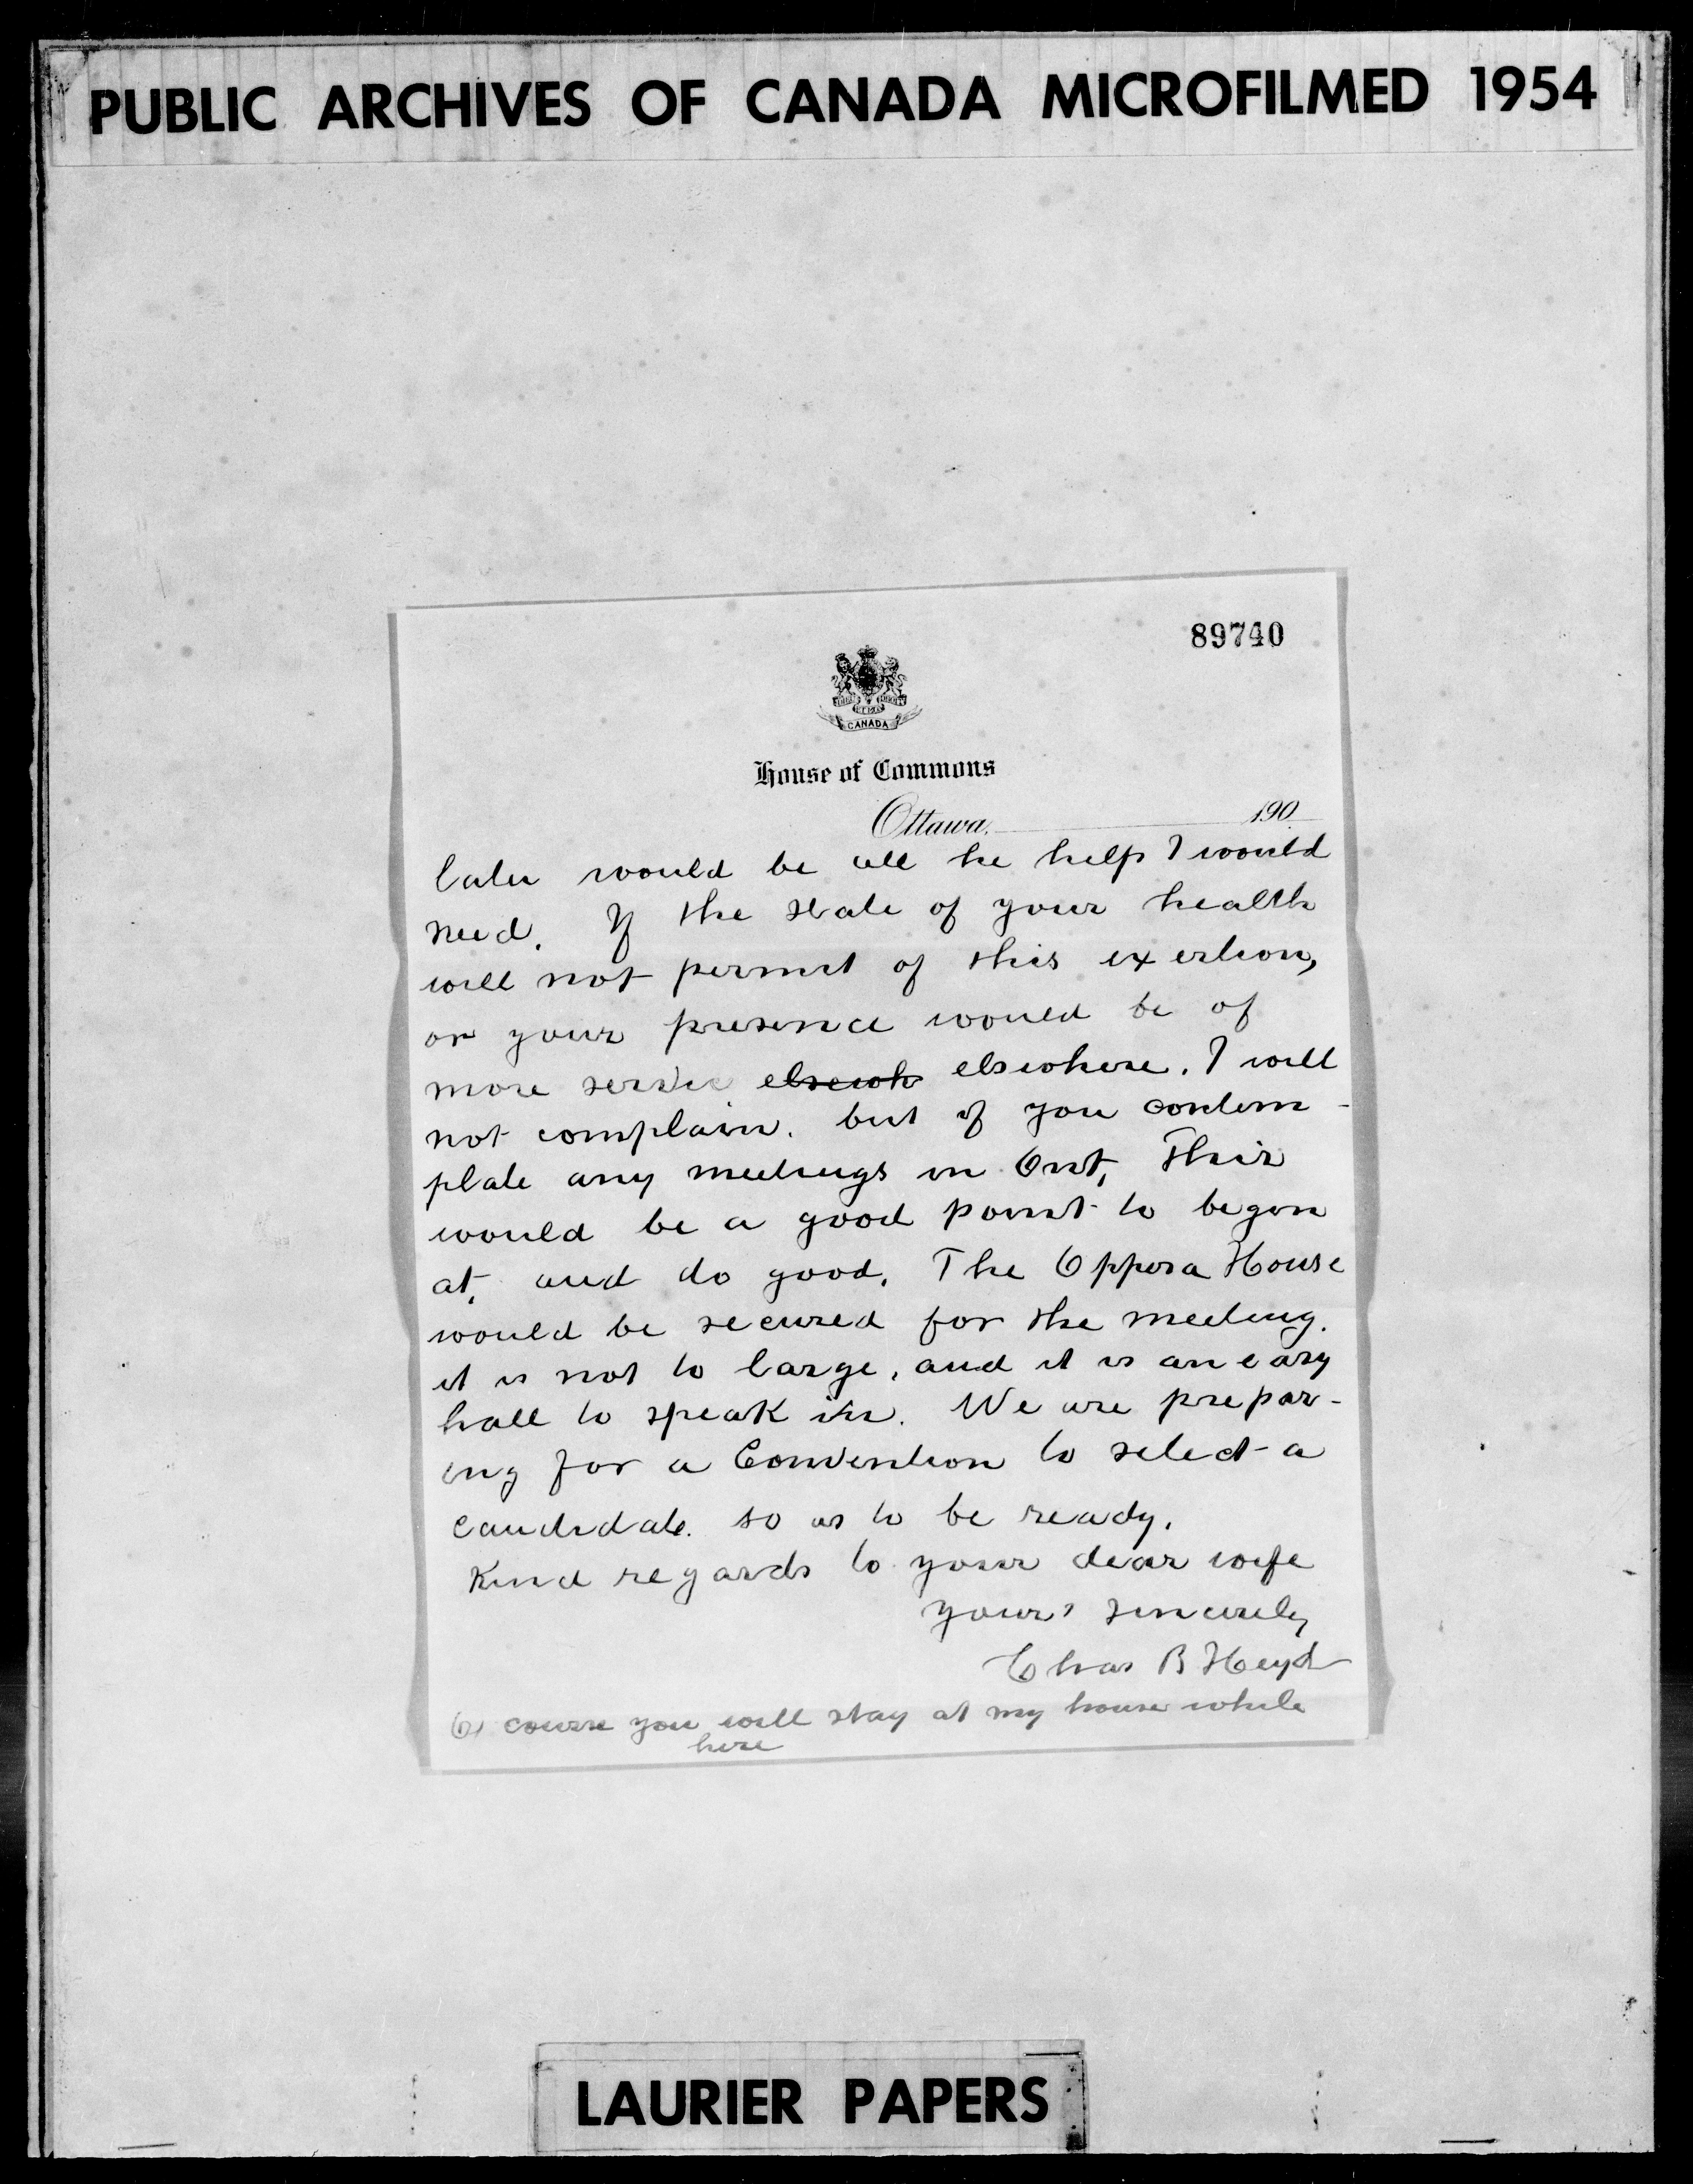 PUBLIC ARCHIVES OF CANADA MICROFILMED 1954
89740
CANADA
House of Commons
Ottawa, 190
later would be all he help I would
need. If the state of your health
will not permit of this exertion,
or your presence would be of
more servic elsewh elswhere. I will
not complain. but if you contem-
plate any meetings in Ont, This
would be a good point to begin
at, and do good. The Oppera House
would be secured for the meeting.
it is not to large, and it is an easy
hall to speak in. We are prepar-
ing for a Convention to select a
candidate. so as to be ready.
Kind regards to your dear wife
yours sincerely
Chas B Heyd
Of course you will stay at my house while
here
LAURIER PAPERS